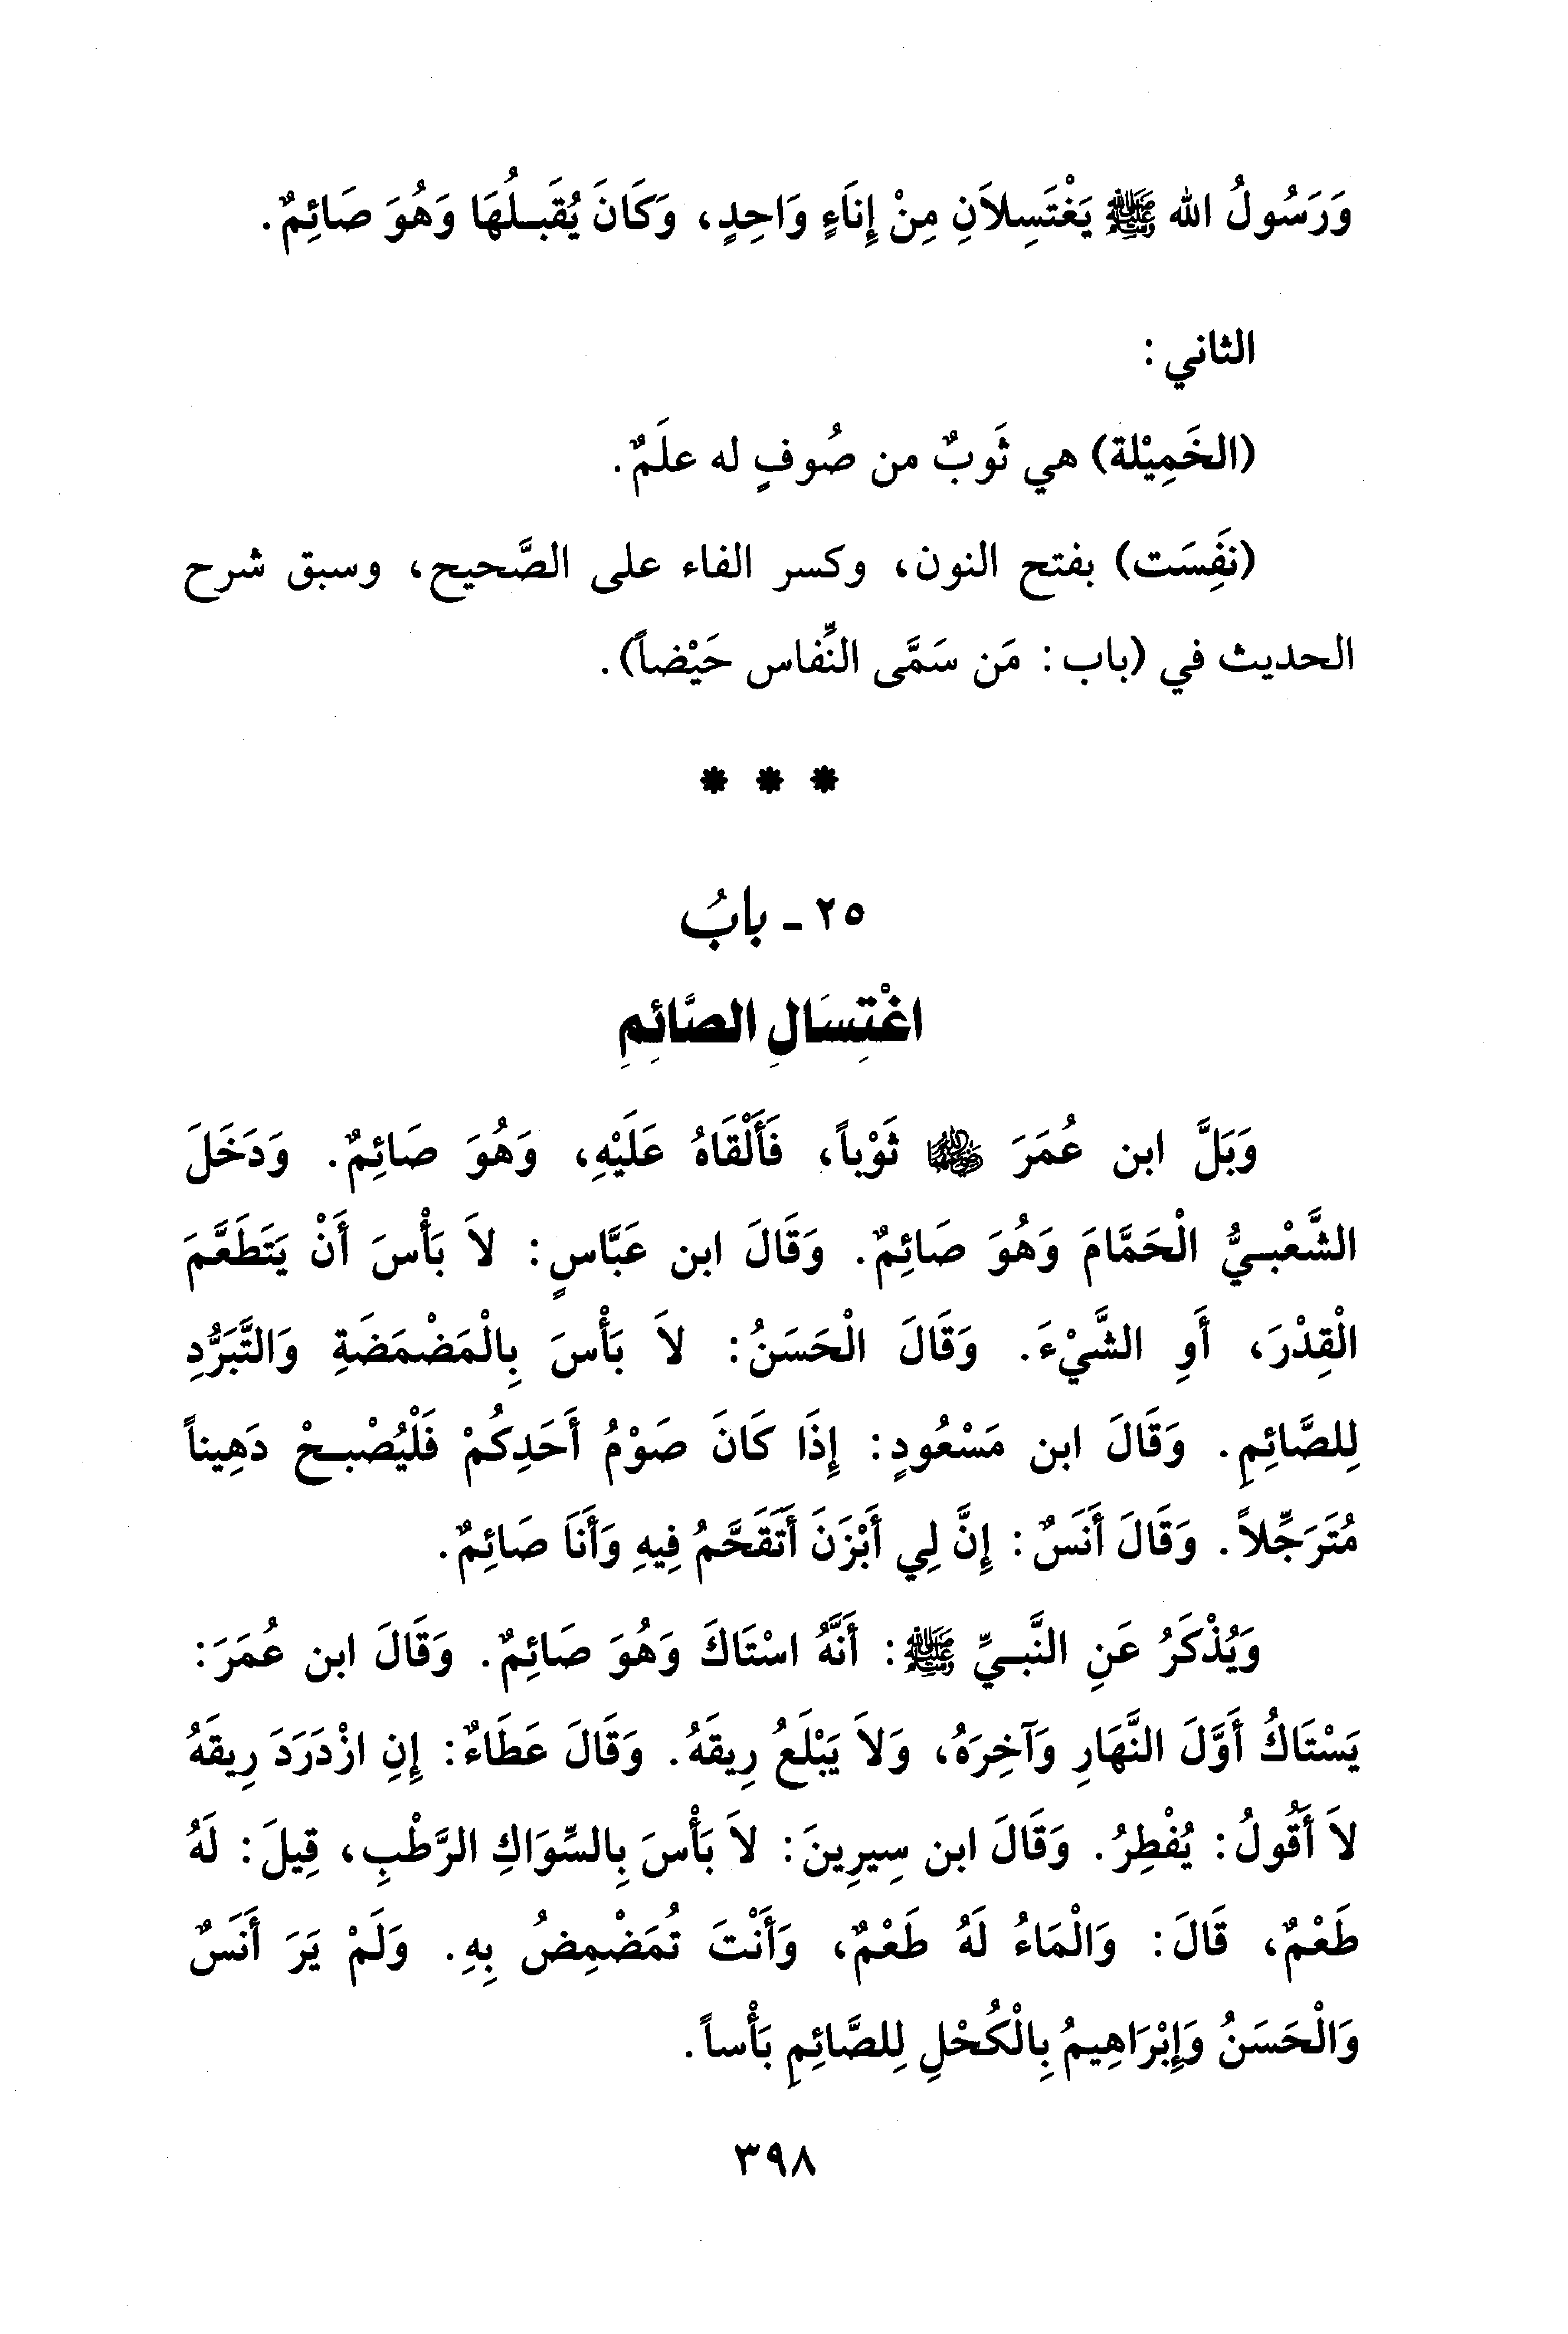 وَرَسُولُ الله ﷺ يَغْتَسِلاَنِ مِنْ إِنَاءٍ وَاحِدٍ، وَكَانَ يُقَبِلُهَا وَهُوَ صَائِمٌ.
الثاني:
(الخَمِيْلة) هي ثَوبٌ من صُوفٍ له علَمٌ.
(نفَِسَت) بفتح النون، وكسر الفاء على الصَّحيح، وسبق شرح
الحديث في (باب: مَن سَمَّى النِّفاس حَيْضاً).
* * *
٢٥ - بابُ
اغْتِسَالِ الصَّائِمِ
وَبَلَّ ابن عُمَرَ رضي الله عنهما ثَوْباً، فَأَلْقَاهُ عَلَيْهِ، وَهُوَ صَائِمٌ. وَدَخَلَ
الشَّعْبِيُّ الْحَمَّامَ وَهُوَ صَائِمٌ. وَقَالَ ابن عَبَّاسٍ: لاَ بَأْسَ أَنْ يَتَطَعَّمَ
الْقِدْرَ، أَوِ الشَّيْءَ. وَقَالَ الْحَسَنُ: لاَ بَأْسَ بِالْمَضْمَضَةِ وَالتَّبَرُّدِ
لِلصَّائِمِ. وَقَالَ ابن مَسْعُودٍ: إِذَا كَانَ صَوْمُ أَحَدِكُمْ فَلْيُصْبِحْ دَهِيناً
مُتَرَجِّلاً. وَقَالَ أَنَسٌ: إِنَّ لِي أَبْزَنَ أَتَقَحَّمُ فِيهِ وَأَنَا صَائِمٌ.
وَيُذْكَرُ عَنِ النَّبِيِّ ﷺ: أَنَّهُ اسْتَاكَ وَهُوَ صَائِمٌ. وَقَالَ ابن عُمَرَ:
يَسْتَاكُ أَوَّلَ النَّهَارِ وَآخِرَهُ، وَلاَ يَبْلَعُ رِيقَهُ. وَقَالَ عَطَاءٌ: إِنِ ازْدَرَدَ رِيقَهُ
لاَ أَقُولُ: يُفْطِرُ. وَقَالَ ابن سِيرِينَ: لاَ بَأْسَ بِالسِّوَاكِ الرَّطْبِ، قِيلَ: لَهُ
طَعْمٌ، قَالَ: وَالْمَاءُ لَهُ طَعْمٌ، وَأَنْتَ تُمَضْمِضُ بِهِ. وَلَمْ يَرَ أَنَسٌ
وَالْحَسَنُ وَإِبْرَاهِيمُ بِالْكُحْلِ لِلصَّائِمِ بَأْساً.
٣٩٨